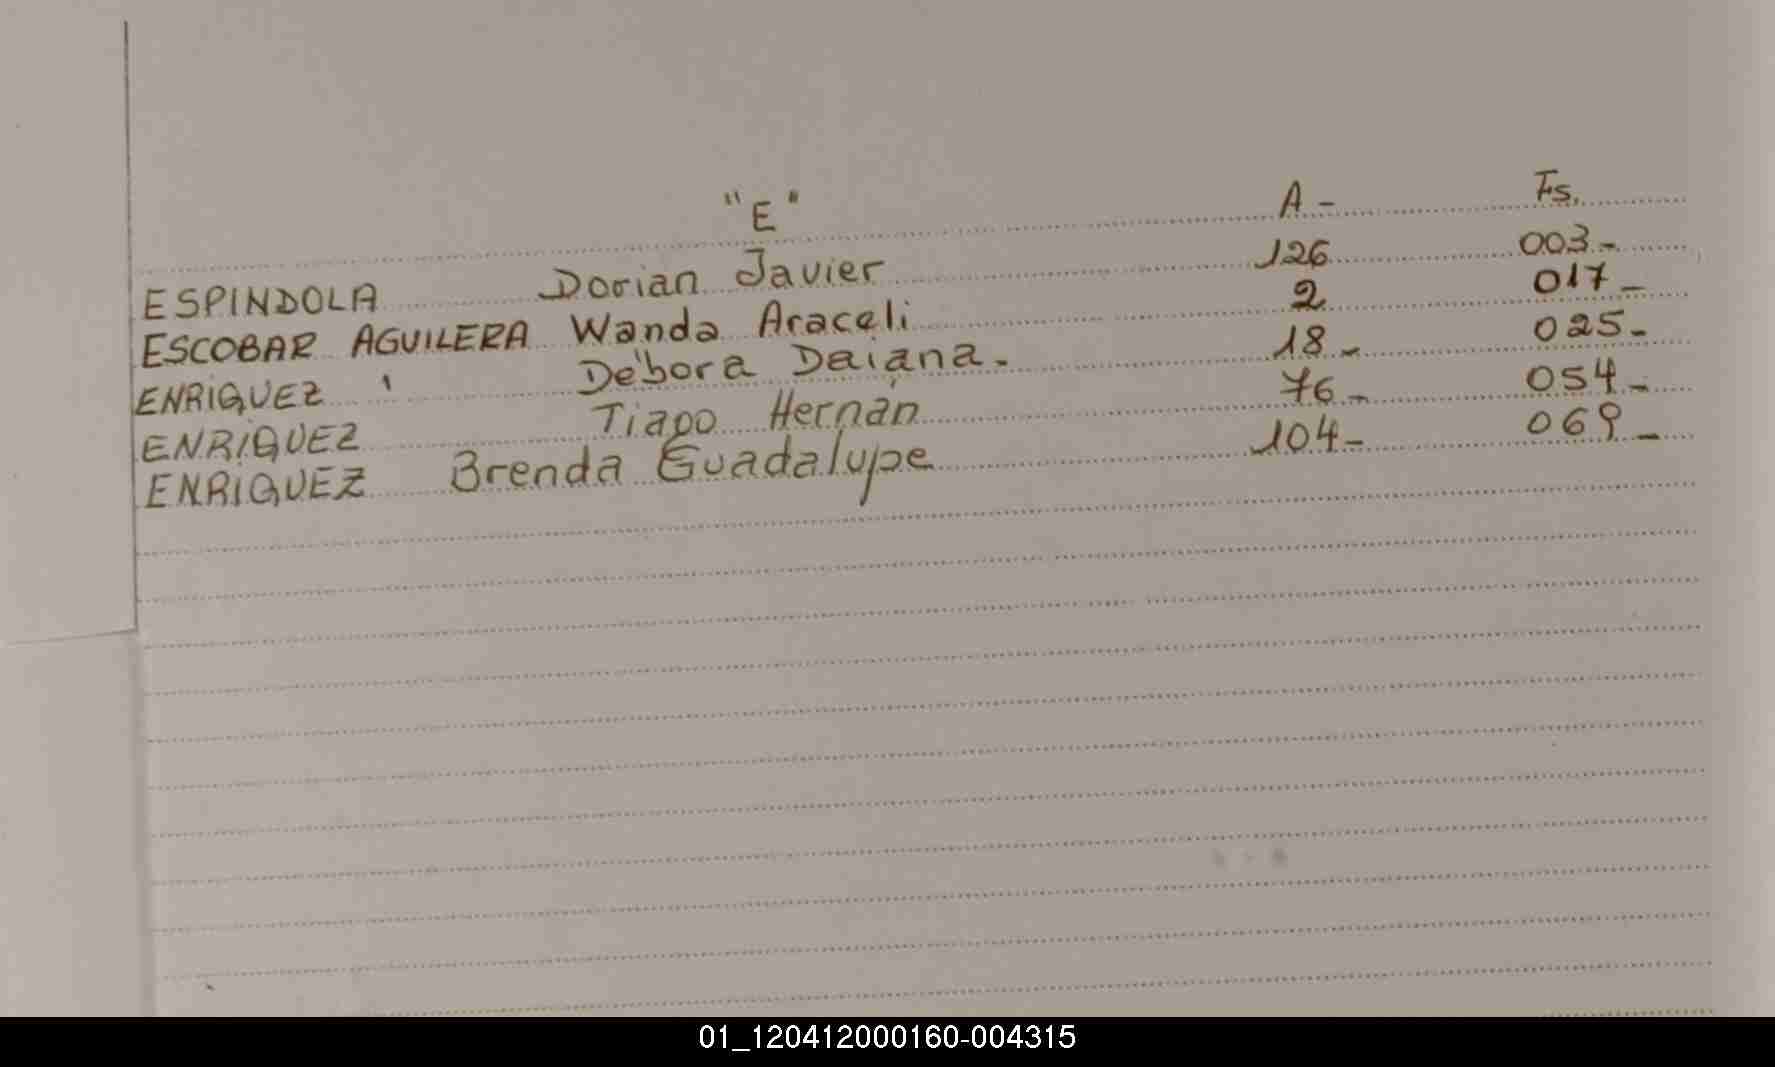 "E" A - Fs.
ESPINDOLA Dorian Javier 126 003-
ESCOBAR AGUILERA Wanda Araceli 2 017-
ENRIQUEZ Débora Daiana. 18- 025-
ENRIQUEZ Tiago Hernán 76- 054-
ENRIQUEZ Brenda Guadalupe 104- 069-
01_120412000160-004315